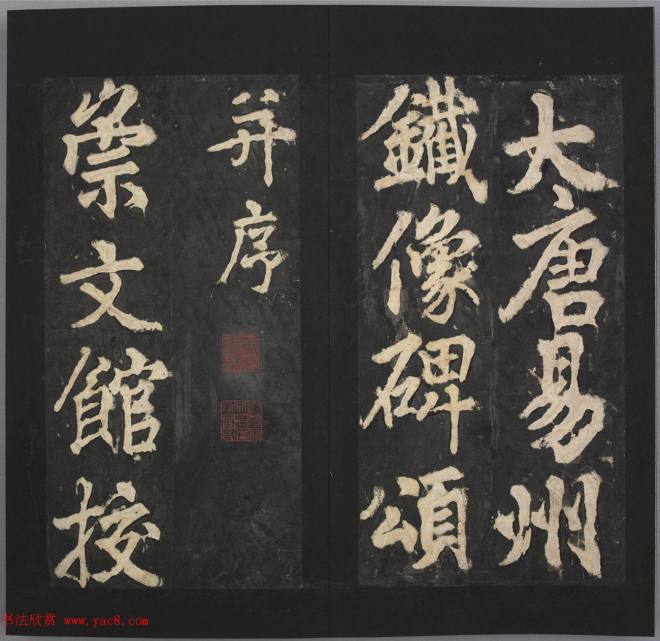 大唐易州
鐵像碑頌
并序
崇文館校
书法欣赏 www.yac8.com